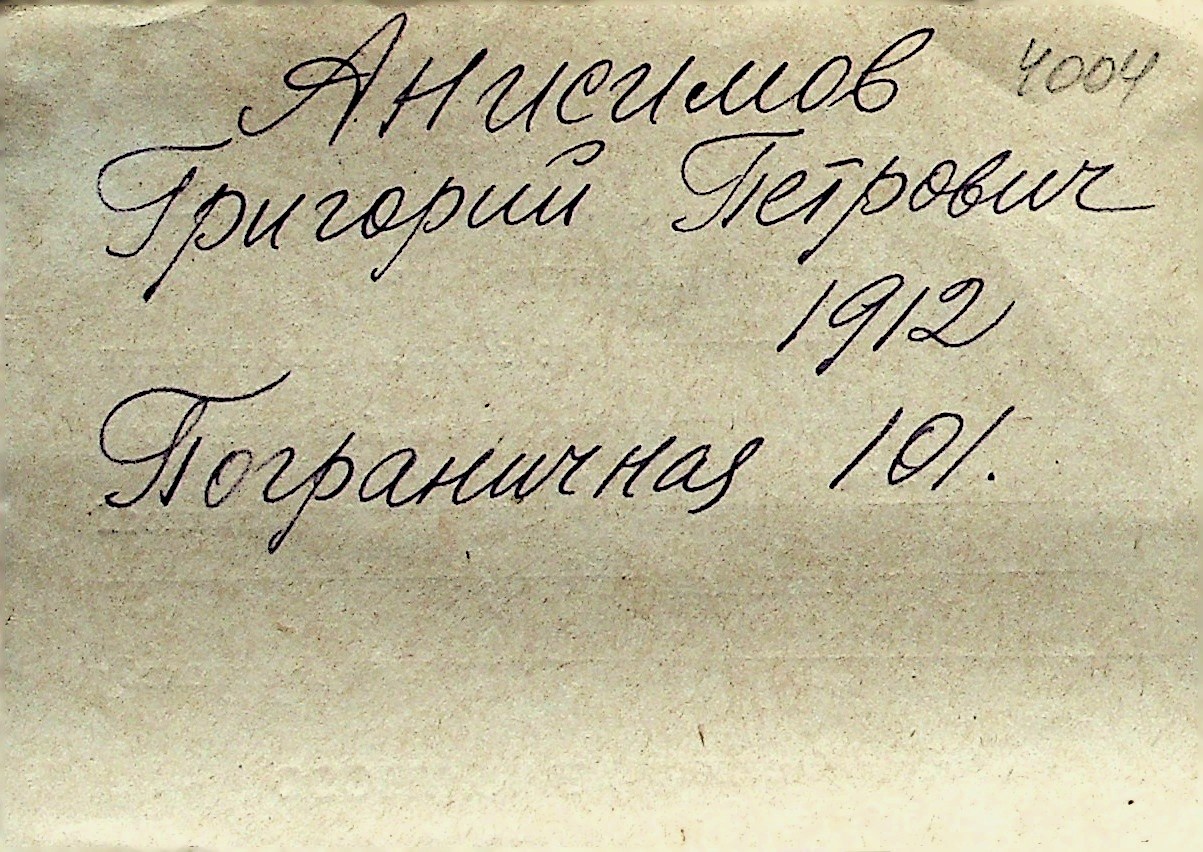 Анисимов 4004
Григорий Петрович
1912
Пограничная 101.